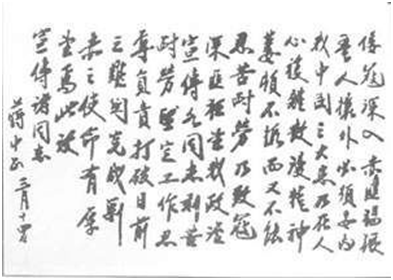 倭寇深入赤匪猖
吾人攘外必須安內
我中國之大患乃在人
心複雜散漫精神
萎頓不振而又不能
忍苦耐勞乃致寇
深匪狂望我政治
宣傳各同志刻苦
耐勞堅定工作忍
辱負責打破目前
之難關完成剿
赤之使命有厚
望焉此致
宣傳諸同志
蔣中正 三月十四